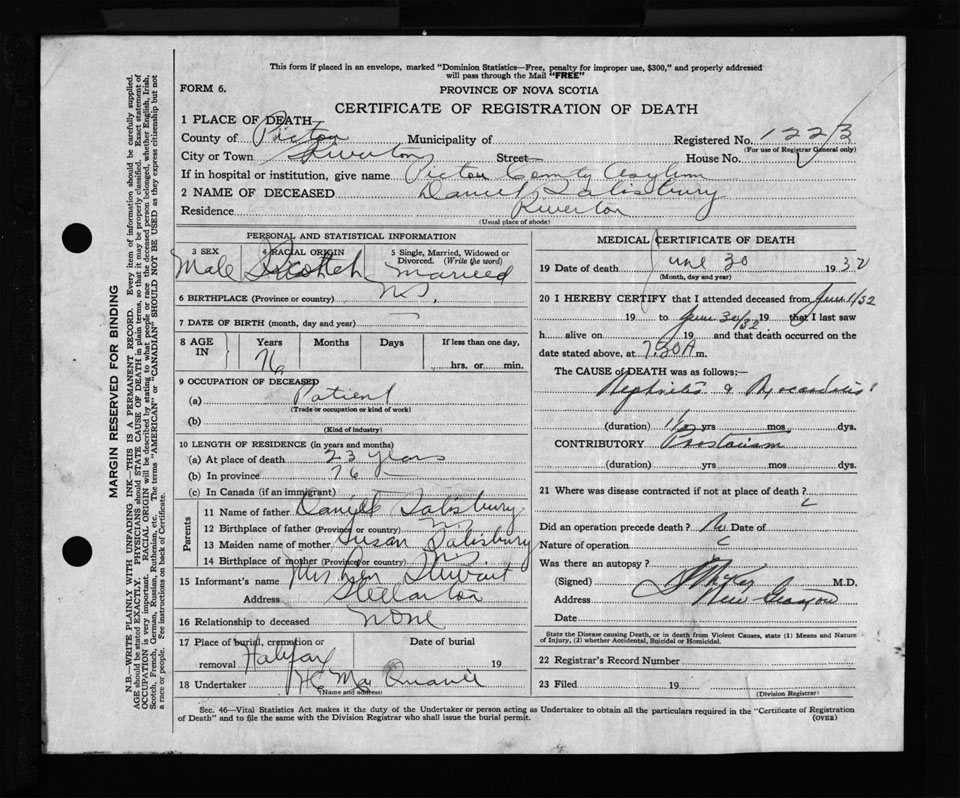 This form if placed in an envelope, marked "Dominion Statistics—Free, penalty for improper use, $300," and properly addressed
will pass through the Mail "FREE"
FORM 6.
PROVINCE OF NOVA SCOTIA
CERTIFICATE OF REGISTRATION OF DEATH
1 PLACE OF DEATH
County of Pictou Municipality of Registered No. 122/3
(For use of Registrar General only)
City or Town Riverton Street House No.
If in hospital or institution, give name Pictou County Asylum
2 NAME OF DECEASED Daniel Salisbury
Residence Riverton
(Usual place of abode)
PERSONAL AND STATISTICAL INFORMATION
3 SEX Male
4 RACIAL ORIGIN Scotch
5 Single, Married, Widowed or Divorced. (Write the word) Married
6 BIRTHPLACE (Province or country) N.S.
7 DATE OF BIRTH (month, day and year)
8 AGE IN Years Months Days If less than one day,
76 hrs. or min.
9 OCCUPATION OF DECEASED
(a) Patient
(Trade or occupation or kind of work)
(b)
(Kind of industry)
10 LENGTH OF RESIDENCE (in years and months)
(a) At place of death 23 years
(b) In province 76
(c) In Canada (if an immigrant)
Parents
11 Name of father Daniel Salisbury
12 Birthplace of father (Province or country) N.S
13 Maiden name of mother Susan Salisbury
14 Birthplace of mother (Province or country) N.S
15 Informant's name Stewart
Address Stellarton
16 Relationship to deceased None
17 Place of burial, cremation or removal Halifax Date of burial 19
18 Undertaker
(Name and address)
MEDICAL CERTIFICATE OF DEATH
19 Date of death June 30 1932
(Month, day and year)
20 I HEREBY CERTIFY that I attended deceased from June 1/32
19 to June 30/32 19 that I last saw
h alive on 19 and that death occurred on the
date stated above, at 7.30 A m.
The CAUSE of DEATH was as follows:—
Nephritis & Myocarditis
(duration) yrs mos. dys.
CONTRIBUTORY
(duration) yrs mos dys.
21 Where was disease contracted if not at place of death?
Did an operation precede death? No Date of
Nature of operation
Was there an autopsy?
(Signed) M.D.
Address New Glasgow
Date
State the Disease causing Death, or in death from Violent Causes, state (1) Means and Nature
of Injury, (2) whether Accidental, Suicidal or Homicidal.
22 Registrar's Record Number
23 Filed 19
(Division Registrar)
Sec. 46—Vital Statistics Act makes it the duty of the Undertaker or person acting as Undertaker to obtain all the particulars required in the "Certificate of Registration
of Death" and to file the same with the Division Registrar who shall issue the burial permit. (OVER)
MARGIN RESERVED FOR BINDING
N.B.—WRITE PLAINLY WITH UNFADING INK—THIS IS A PERMANENT RECORD. Every item of information should be carefully supplied.
AGE should be stated EXACTLY. PHYSICIANS should STATE CAUSE OF DEATH in plain terms, so that it may be properly classified. Exact statement of
OCCUPATION is very important. RACIAL ORIGIN will be described by stating to what people or race the deceased person belonged, whether English, Irish,
Scotch, French, German, Russian, Ruthenian, etc. The terms "AMERICAN" or "CANADIAN" SHOULD NOT BE USED as they express citizenship but not
a race or people. See instructions on back of Certificate.